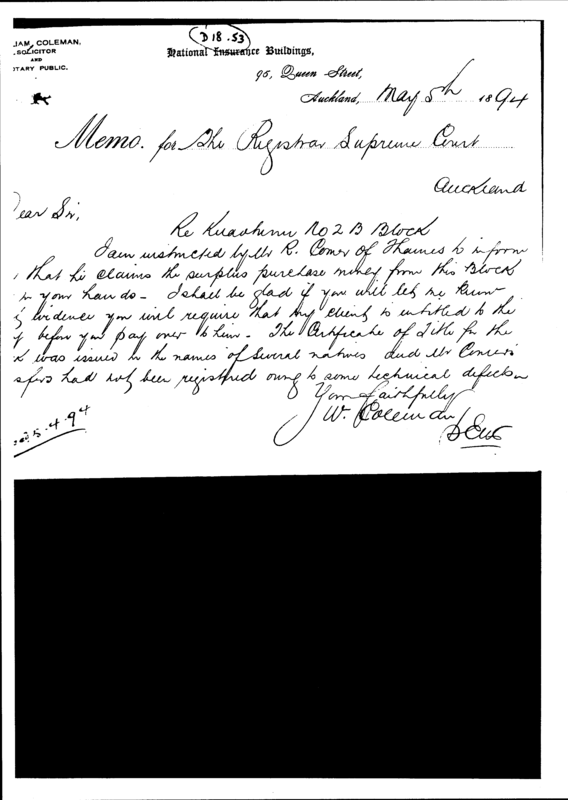 D 18.53
IAM COLEMAN,
SOLICITOR
AND
TARY PUBLIC.
National Insurance Buildings,
96, Queen Street,
Auckland, May 5th 1894
Memo. for The Registrar Supreme Court
Auckland
Dear Sir,
Re No 2 B Block
I am instructed by Mr R. Comer of Thames to inform
that he claims the surplus purchase money from this Block
in your hands - I shall be glad if you will let me know
evidence you will require that my client is entitled to the
before you pay over to him - The Certificate of Title for the
was issued in the names of several natives and Mr Comer's
sfers had not been registered owing to some technical defects
Yours faithfully
W. Coleman
5.4.94